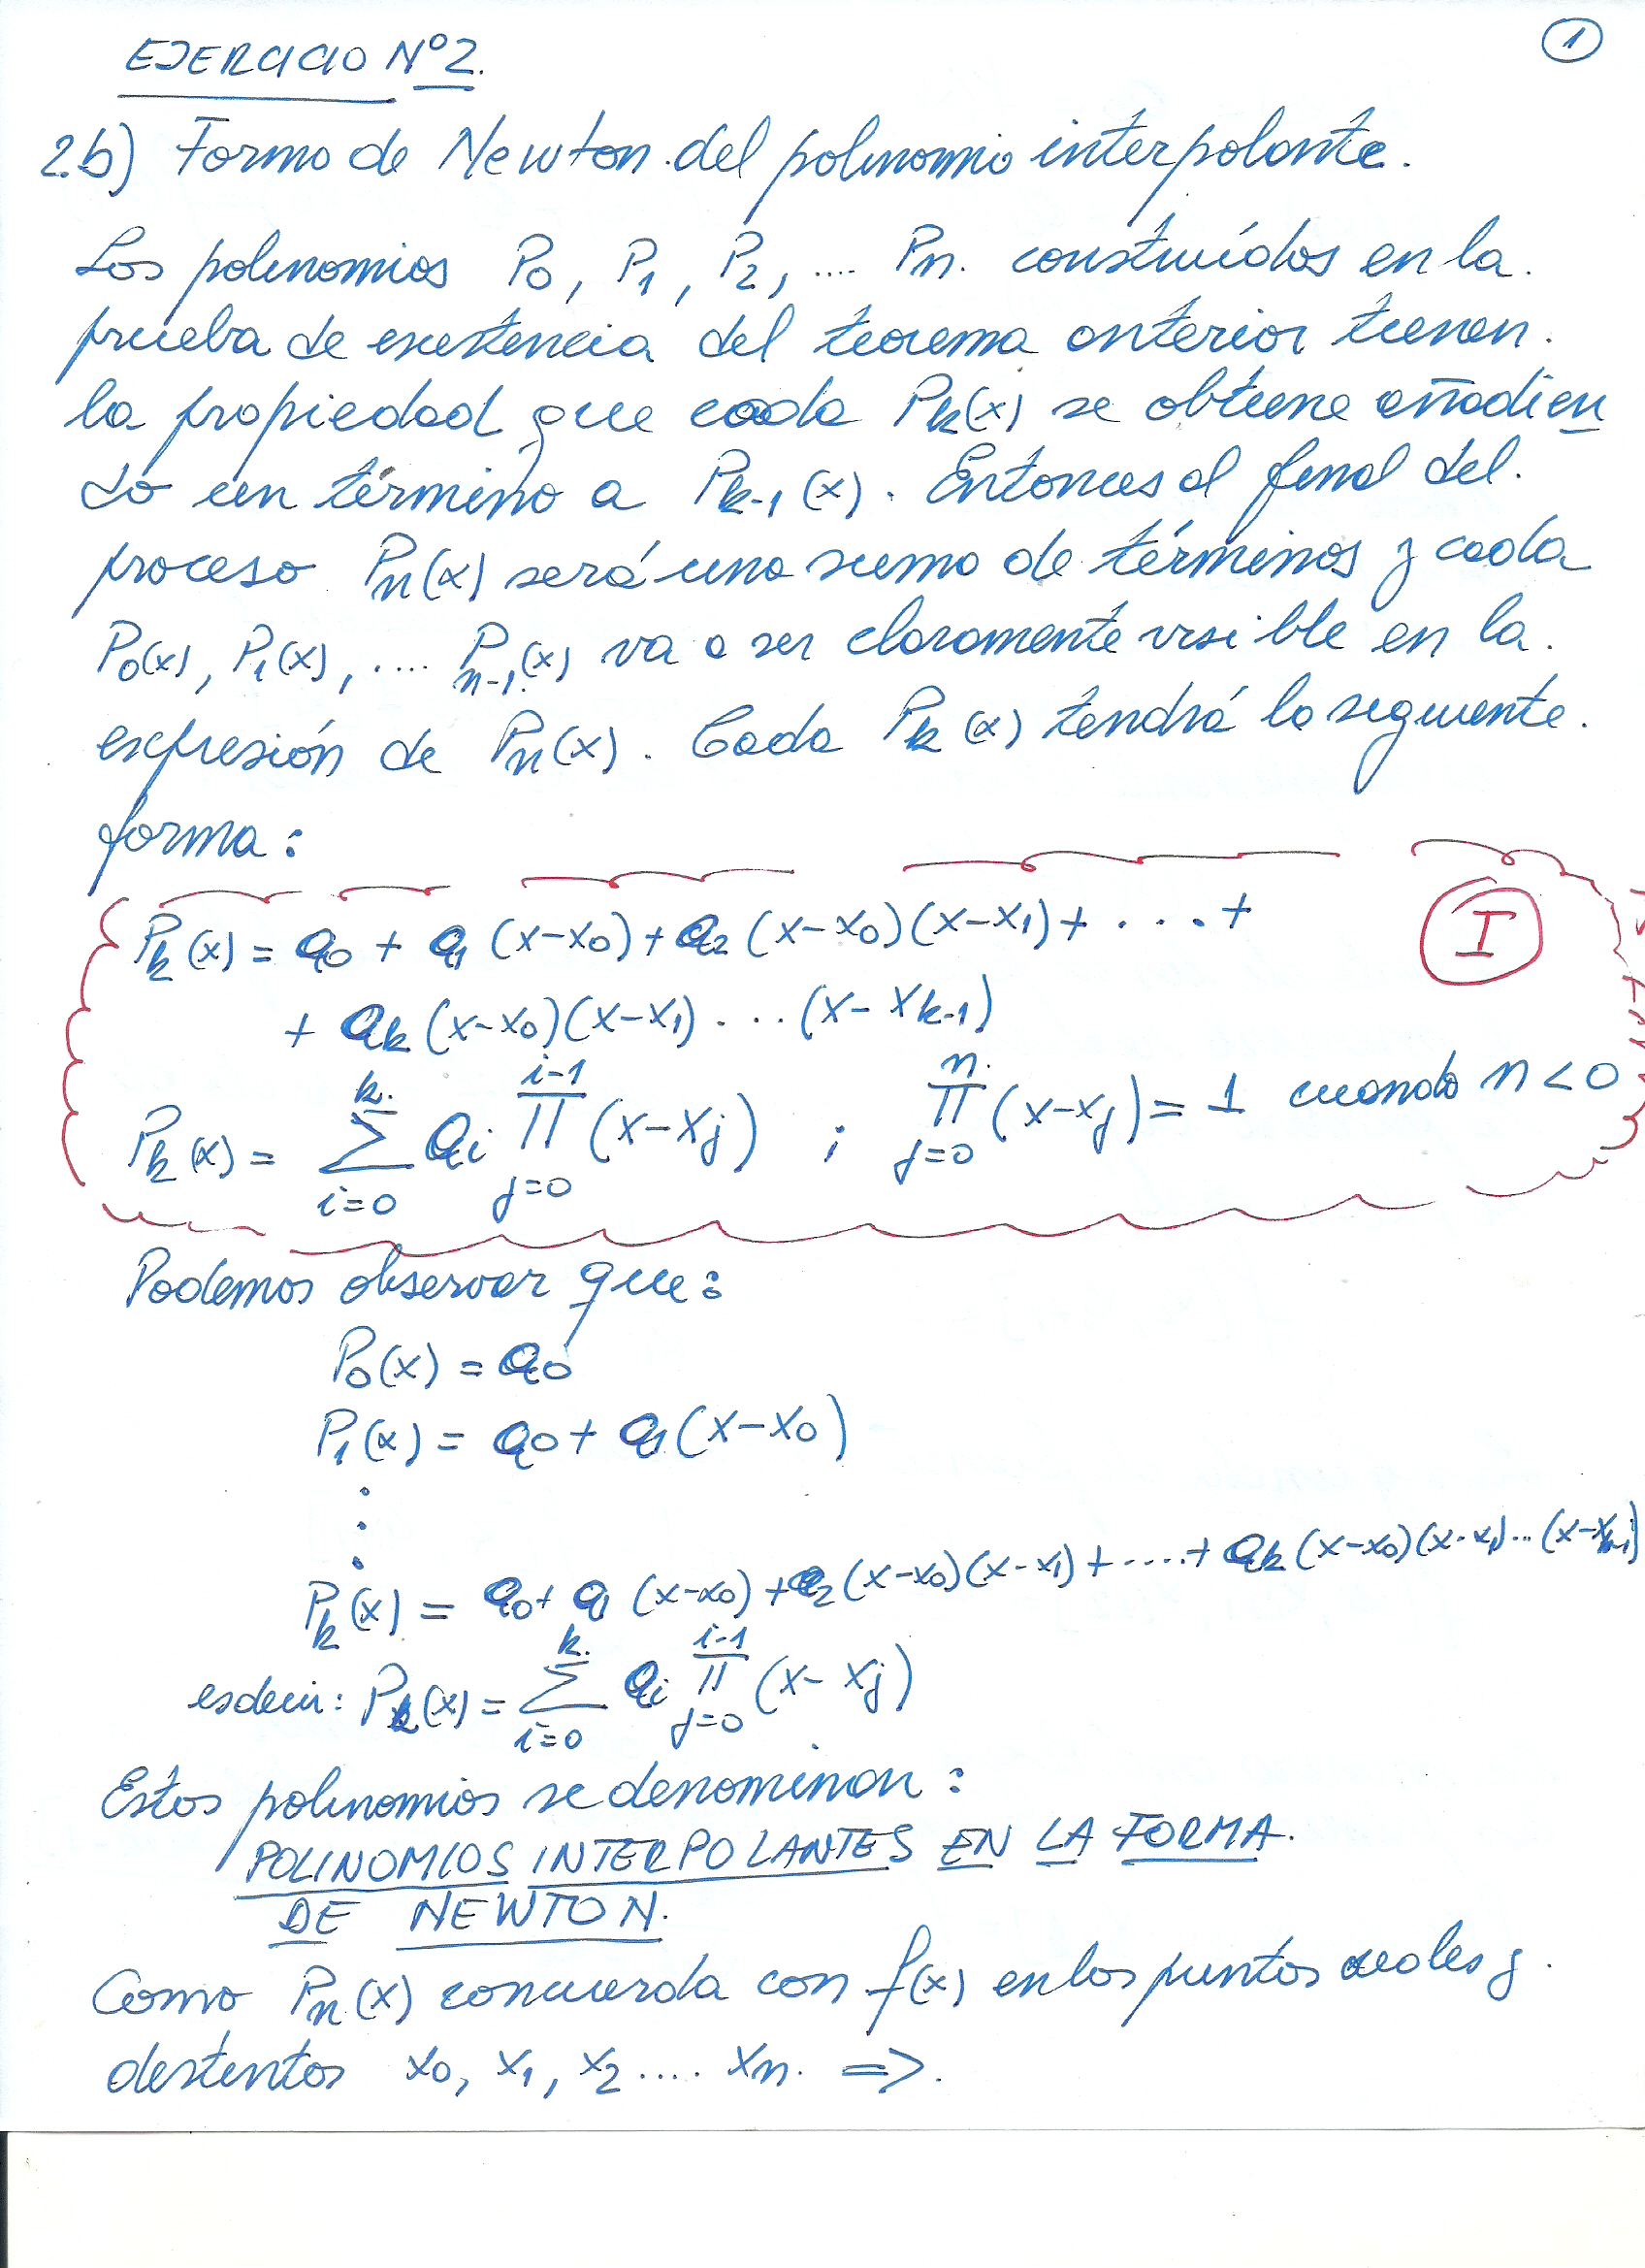 1
EJERCICIO Nº 2.
2.b) Forma de Newton del polinomio interpolante.
Los polinomios P₀, P₁, P₂, .... Pₙ. construídos en la.
prueba de existencia del teorema anterior tienen.
la propiedad que cada Pₖ(x) se obtiene añadien
do un término a Pₖ₋₁(x). Entonces al final del.
proceso Pₙ(x) será una suma de términos y cada
P₀(x), P₁(x), .... Pₙ₋₁(x) va a ser claramente visible en la.
expresión de Pₙ(x). Cada Pₖ(x) tendrá la siguiente.
forma:
Pₖ(x) = a₀ + a₁(x-x₀) + a₂(x-x₀)(x-x₁) + .... +
I
+ aₖ(x-x₀)(x-x₁)....(x-xₖ₋₁)
Pₖ(x) = ∑_{i=0}^{k} aᵢ ∏_{j=0}^{i-1} (x-xⱼ) ; ∏_{j=0}^{n} (x-xⱼ) = 1 cuando n<0
Podemos observar que:
P₀(x) = a₀
P₁(x) = a₀ + a₁(x-x₀)
⋮
Pₖ(x) = a₀ + a₁(x-x₀) + a₂(x-x₀)(x-x₁) + ..... + aₖ(x-x₀)(x-x₁)...(x-xₖ₋₁)
es decir: Pₖ(x) = ∑_{i=0}^{k} aᵢ ∏_{j=0}^{i-1} (x-xⱼ)
Estos polinomios se denominan:
POLINOMIOS INTERPOLANTES EN LA FORMA.
DE NEWTON.
Como Pₙ(x) concuerda con f(x) en los puntos reales y.
distintos x₀, x₁, x₂.... xₙ. =>.